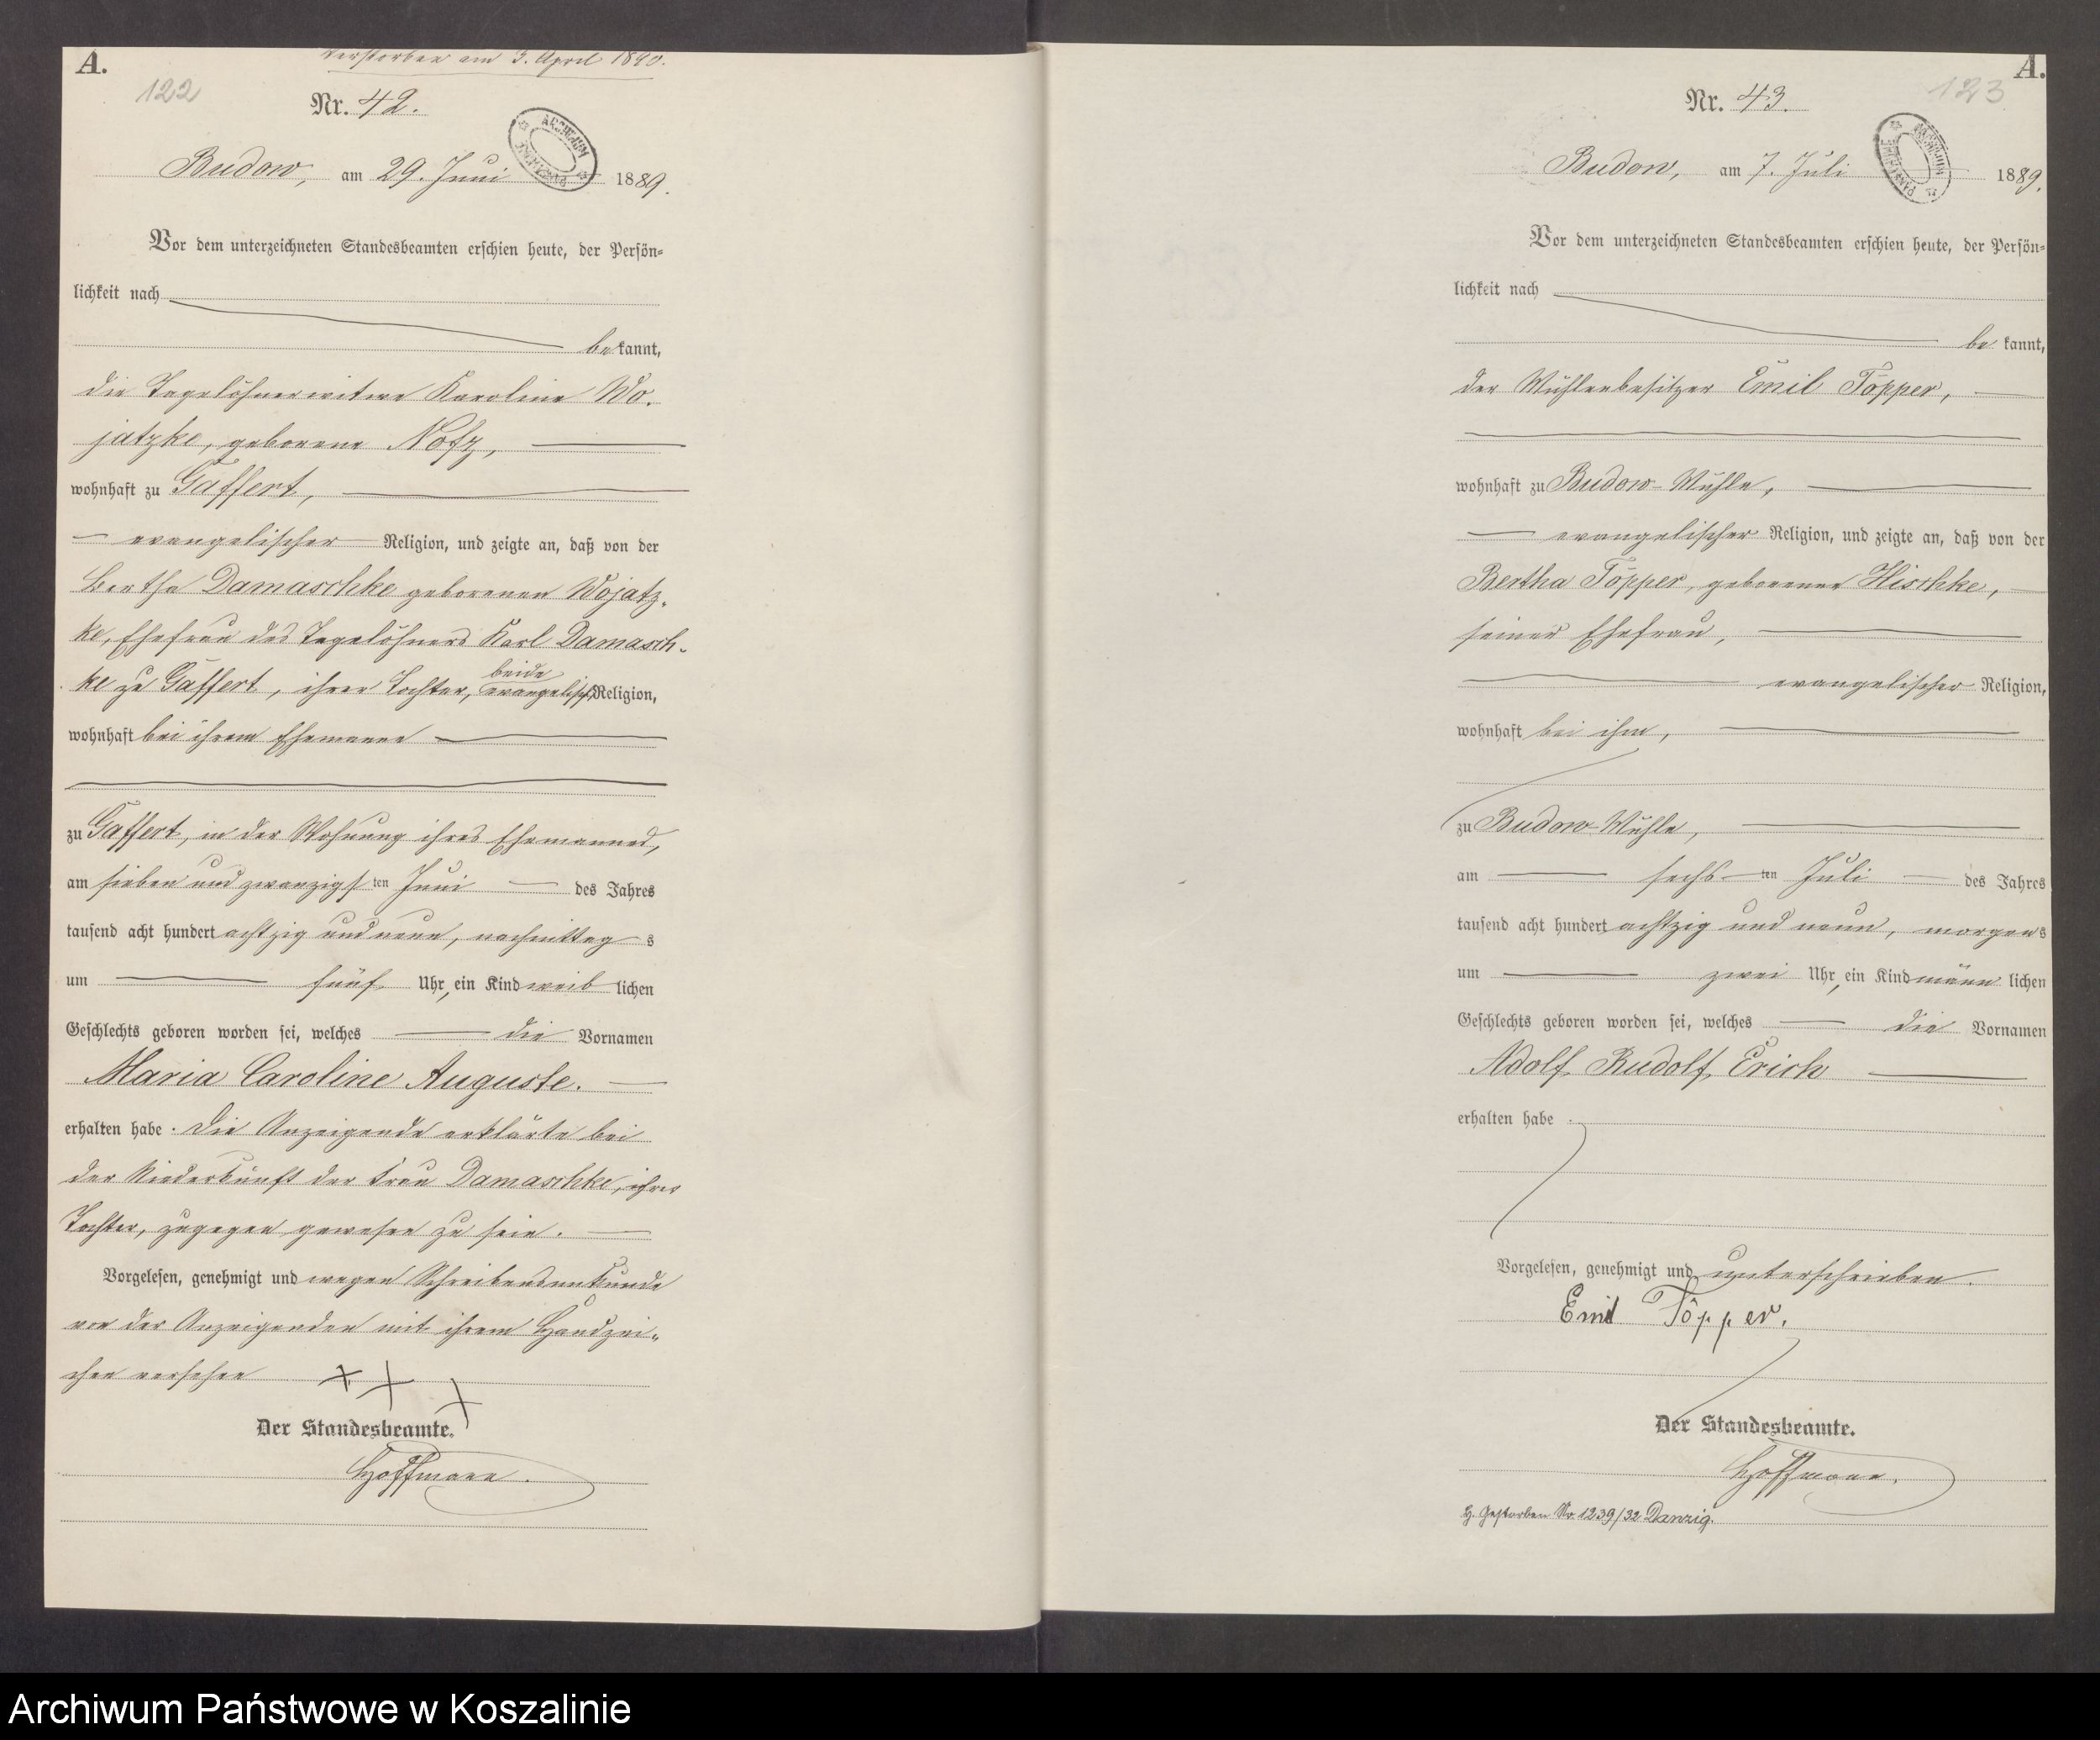 A.
verstorben am 3. April 1890.
122
Nr. 42.
ARCHIWUM PAŃSTWOWE
Budow, am 29. Juni 1889.
Vor dem unterzeichneten Standesbeamten erschien heute, der Persön-
lichkeit nach
bekannt,
die Tagelöhnerwitwe Karoline Wo-
jatzke, geborene Notz,
wohnhaft zu Gaffert,
evangelischer Religion, und zeigte an, daß von der
Bertha Damaschke geborenen Wojatz-
ke, Ehefrau des Tagelöhners Karl Damasch-
beide
ke zu Gaffert, ihrer Tochter, evangelisch Religion,
wohnhaft bei ihrem Ehemanne
zu Gaffert, in der Wohnung ihres Ehemannes,
am sieben und zwanzigsten Juni des Jahres
tausend acht hundert achtzig und neun, nachmittags
um fünf Uhr, ein Kind weiblichen
Geschlechts geboren worden sei, welches die Vornamen
Maria Caroline Auguste.
erhalten habe. Die Anzeigende erklärte bei
der Niederkunft der Frau Damaschke, ihrer
Tochter, zugegen gewesen zu sein.
Vorgelesen, genehmigt und wegen Schreibensunkunde
von der Anzeigenden mit ihrem Handzei-
chen versehen
+ + +
Der Standesbeamte.
Hoffmann.
A.
123
Nr. 43.
ARCHIWUM PAŃSTWOWE
Budow, am 7. Juli 1889.
Vor dem unterzeichneten Standesbeamten erschien heute, der Persön-
lichkeit nach
bekannt,
der Mühlenbesitzer Emil Töpper,
wohnhaft zu Budow-Mühle,
evangelischer Religion, und zeigte an, daß von der
Bertha Töpper, geborenen Hischke,
seiner Ehefrau,
evangelischer Religion,
wohnhaft bei ihm,
zu Budow-Mühle,
am sechsten Juli des Jahres
tausend acht hundert achtzig und neun, morgens
um zwei Uhr, ein Kind männlichen
Geschlechts geboren worden sei, welches die Vornamen
Adolf Rudolf Erich
erhalten habe.
Vorgelesen, genehmigt und unterschrieben.
Emil Töpper.
Der Standesbeamte.
Hoffmann.
Gestorben Nr. 1239/32 Danzig.
Archiwum Państwowe w Koszalinie